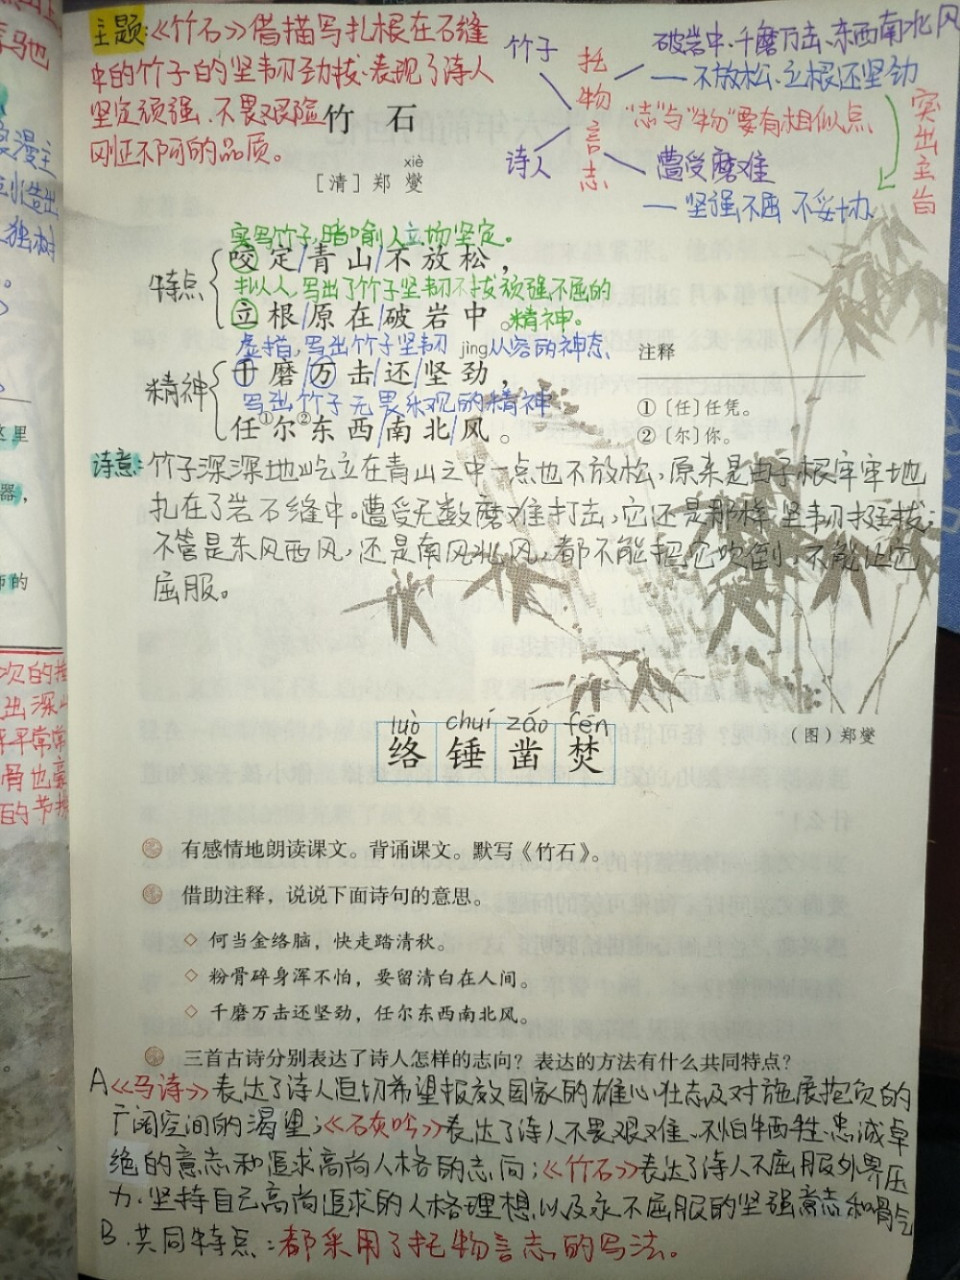 主题:《竹石》借描写扎根在石缝
中的竹子的坚韧劲拔,表现了诗人
坚定顽强、不畏艰险
刚正不阿的品质。
竹子
诗人
托物言志
破岩中、千磨万击、东西南北风
— 不放松、立根还坚劲
"志"与"物"要有相似点
遭受磨难
— 坚强不屈 不妥协
突出主旨
竹 石
xiè
[清] 郑 燮
实写竹子,暗喻人立场坚定。
特点
咬定/青山/不放松,
拟人,写出了竹子坚韧不拔顽强不屈的
立根/原在/破岩中。精神。
虚指,写出竹子坚韧 jìng从容的神态
精神
千磨/万击/还/坚劲,
写出竹子无畏乐观的精神
任①尔②东西/南北/风。
注释
①〔任〕任凭。
②〔尔〕你。
诗意:竹子深深地屹立在青山之中一点也不放松,原来是由于根牢牢地
扎在了岩石缝中。遭受无数磨难打击,它还是那样坚韧挺拔;
不管是东风西风,还是南风北风,都不能把它吹倒,不能让它
屈服。
(图)郑燮
luò chuí záo fén
络 锤 凿 焚
有感情地朗读课文。背诵课文。默写《竹石》。
借助注释,说说下面诗句的意思。
◇ 何当金络脑,快走踏清秋。
◇ 粉骨碎身浑不怕,要留清白在人间。
◇ 千磨万击还坚劲,任尔东西南北风。
三首古诗分别表达了诗人怎样的志向?表达的方法有什么共同特点?
A《马诗》表达了诗人迫切希望报效国家的雄心壮志及对施展抱负的
广阔空间的渴望;《石灰吟》表达了诗人不畏艰难、不怕牺牲、忠诚卓
绝的意志和追求高尚人格的志向;《竹石》表达了诗人不屈服外界压
力、坚持自己高尚追求的人格理想,以及永不屈服的坚强意志和骨气
B.共同特点:都采用了托物言志的写法。